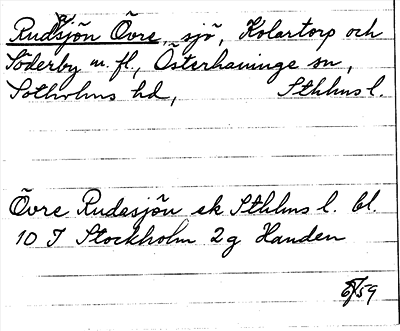 Rudasjön Övre, sjö, Kolartorp och
Söderby m. fl., Österhaninge sn,
Sotholms hd, Sthlms l.
Övre Rudasjön ek Sthlms l. bl.
10 I Stockholm 2g Handen
59